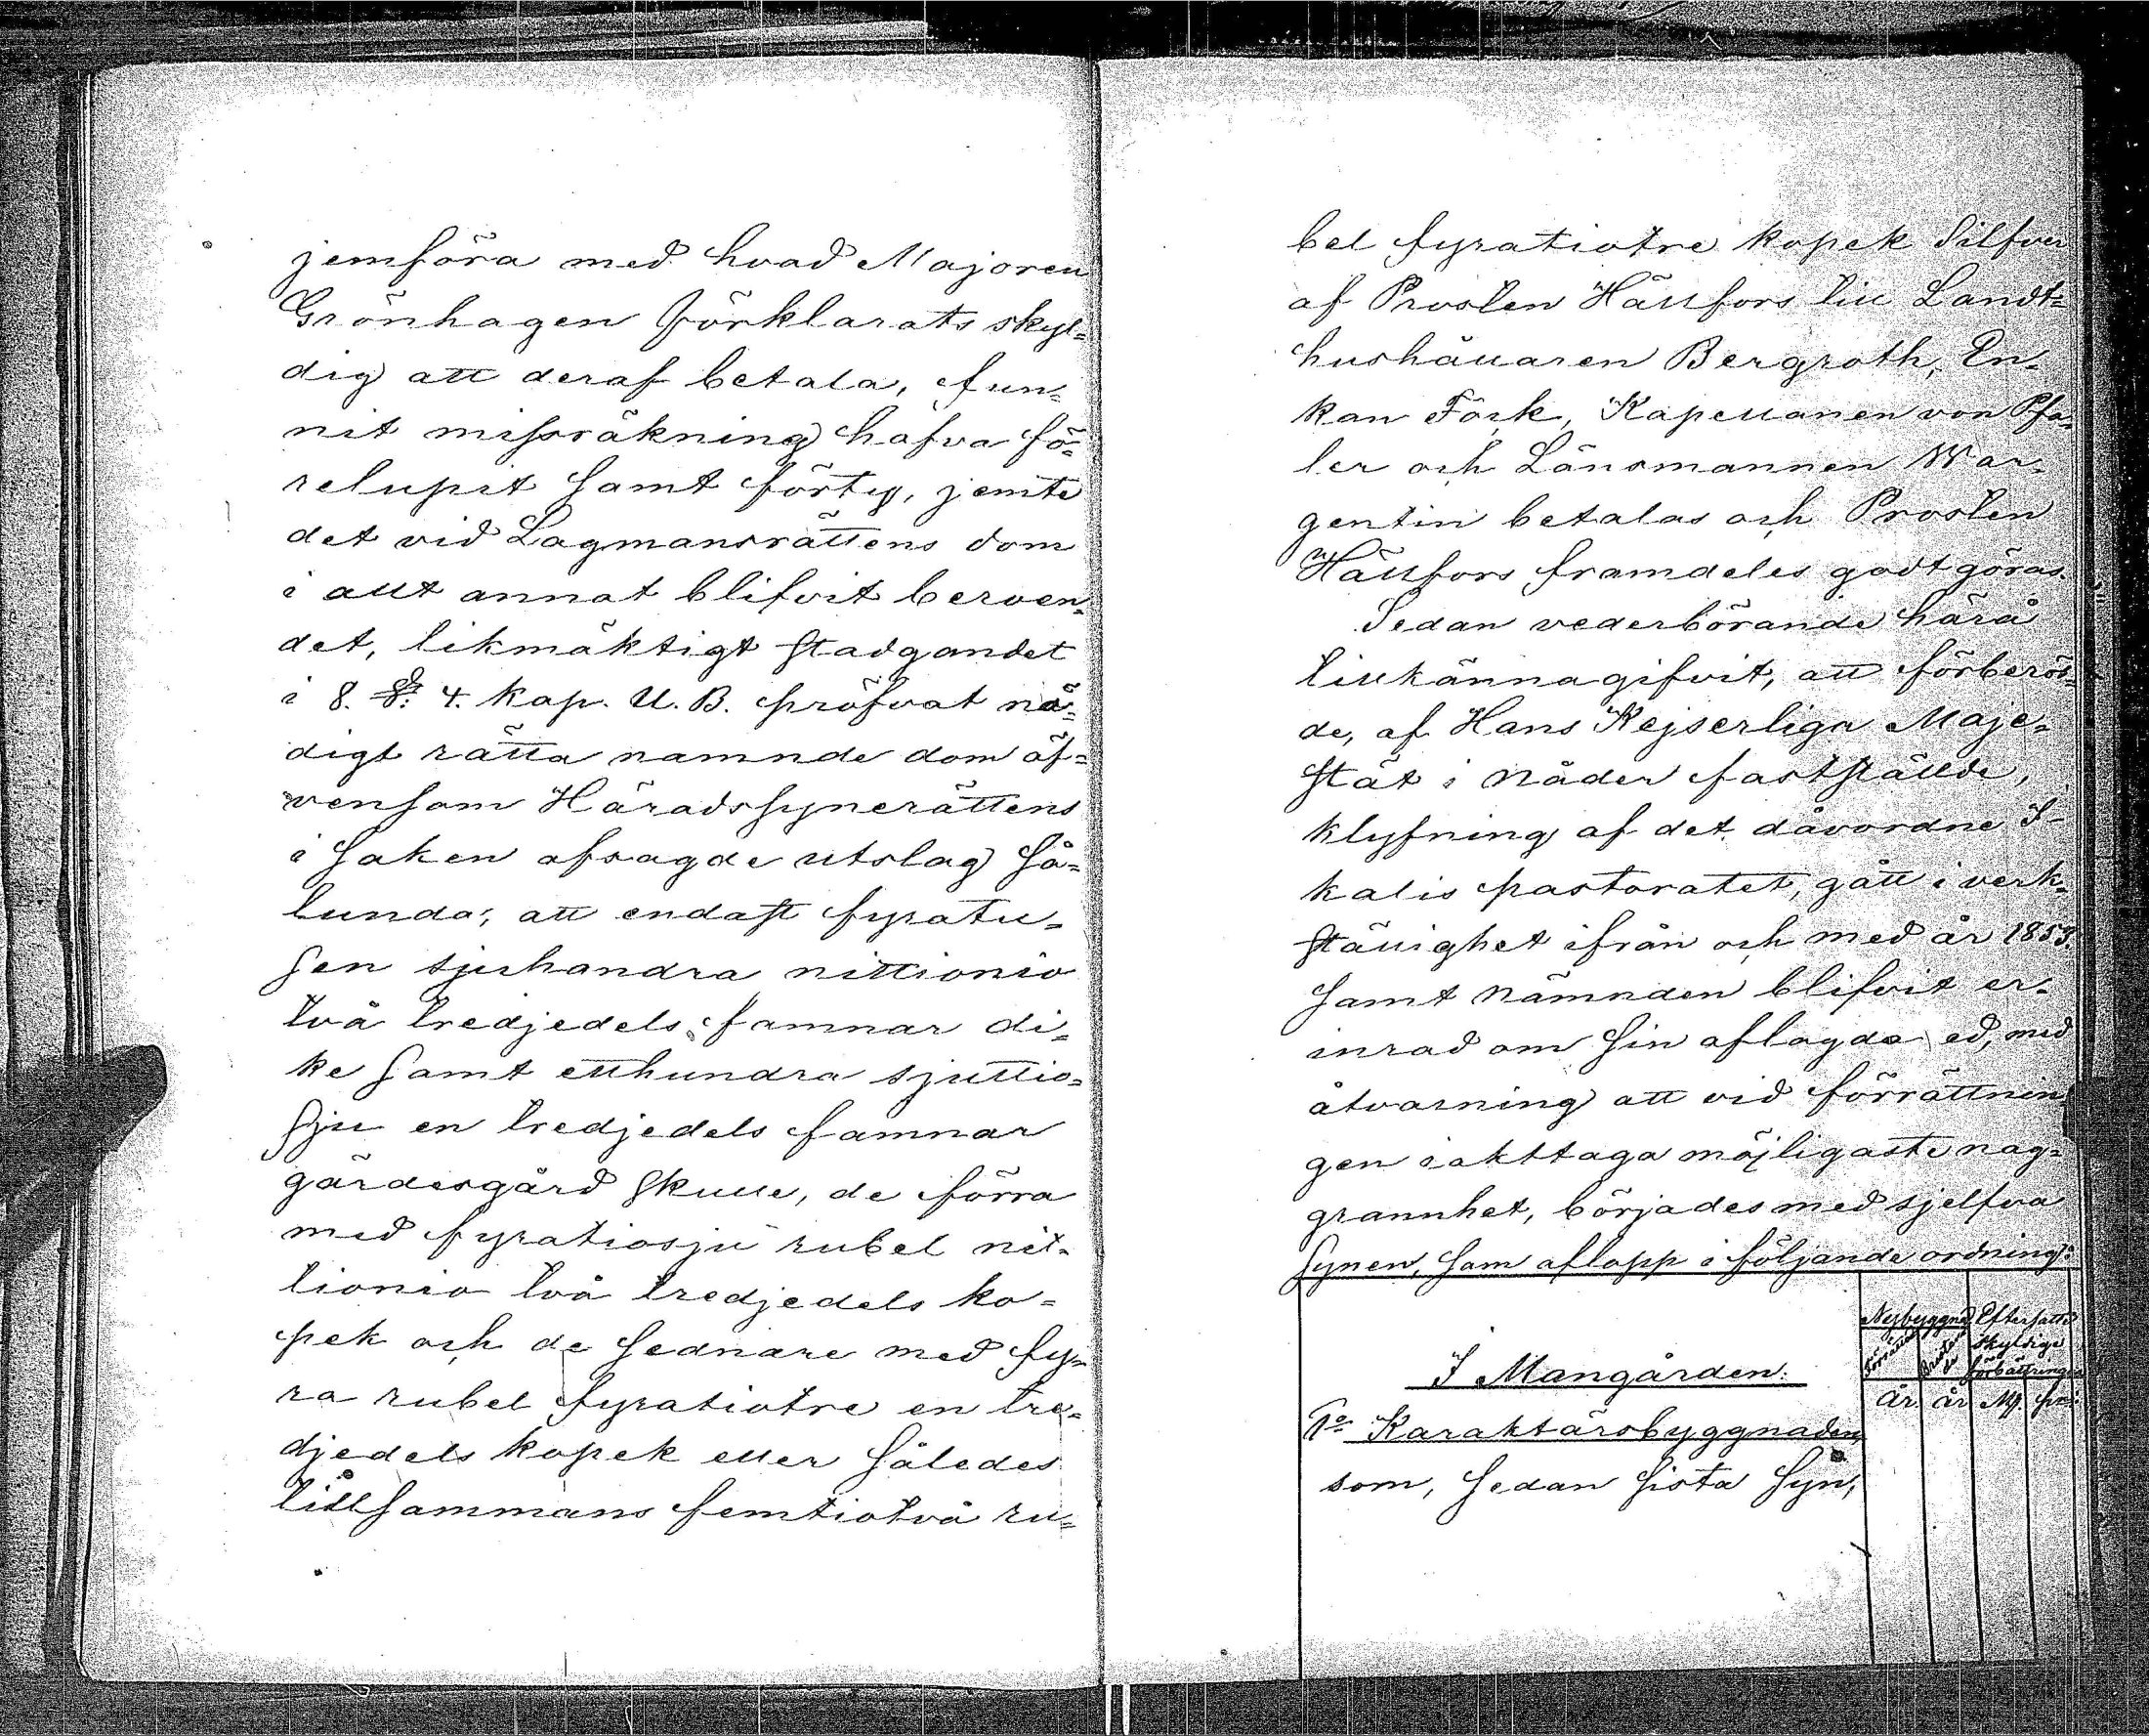 jemföra med hvad Majoren
Grönhagen förklarats skyl=
dig att deraf betala, fun=
nit missräkning hafva fö=
relupit samt förty, jemte
det vid Lagmansrättens dom
i allt annat blifvit berоen=
det, likmäktigt stadgandet
i 8. §. 4. Kap. U. B. pröfvat nö=
digt rätta namnde dom äf=
vensom Häradssynerättens
i saken afsagde utslag så=
lunda, att endast fyratu=
sen sjuhandra nittionio
två tredjedels famnar di=
ke samt etthundra sjuttio=
sju en tredjedels famnar
gärdesgård skulle, de förra
med fyratiosju rubel nit=
tionio två tredjedels ko=
pek och de sednare med fy=
ra rubel fyratiotre en tre=
djedels kopek eller således
tillsammans femtiotvå ru=
bel fyratiotre kopek Silfver
af Prosten Hällfors till Landt=
hushållaren Bergroth, En=
kan Förk, Kapellanen von Pfa=
ler och Länsmannen War=
gentin betalas och Prosten
Hällfors framdeles godtgöras.
Sedan vederbörande härå
tillkännagifvit, att förberör=
de, af Hans Kejserliga Maje=
stät i Nåder fastställde,
klyfning af det dåvordne I=
kalis pastoratet, gått i verk=
ställighet ifrån och med år 1853.
samt Nämnden blifvit er=
inrad om sin aflagda ed, med
åtvarning att vid förrättnin
gen iakttaga möjligaste nog=
grannhet, börjades med sjelfva
synen, som aflopp i följande ordning:
Nybyggnad Eftersatte
skyldige
förbättringar
År. år
I Mangården.
1o Karaktärsbyggnaden,
som, sedan sista syn,